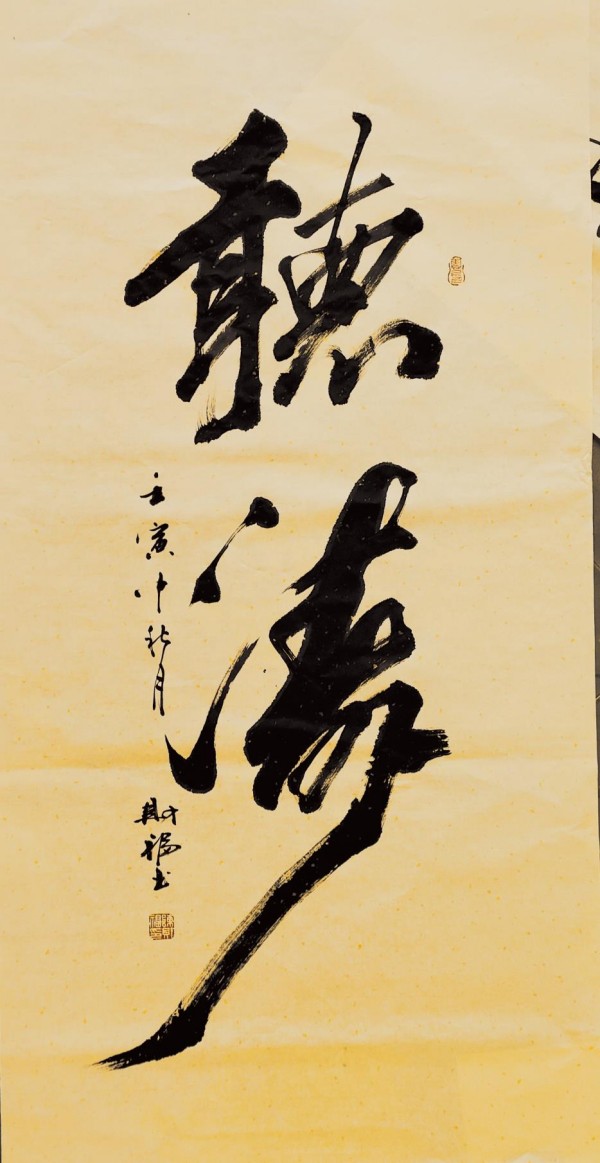 聽濤
壬寅中秋月
財福书